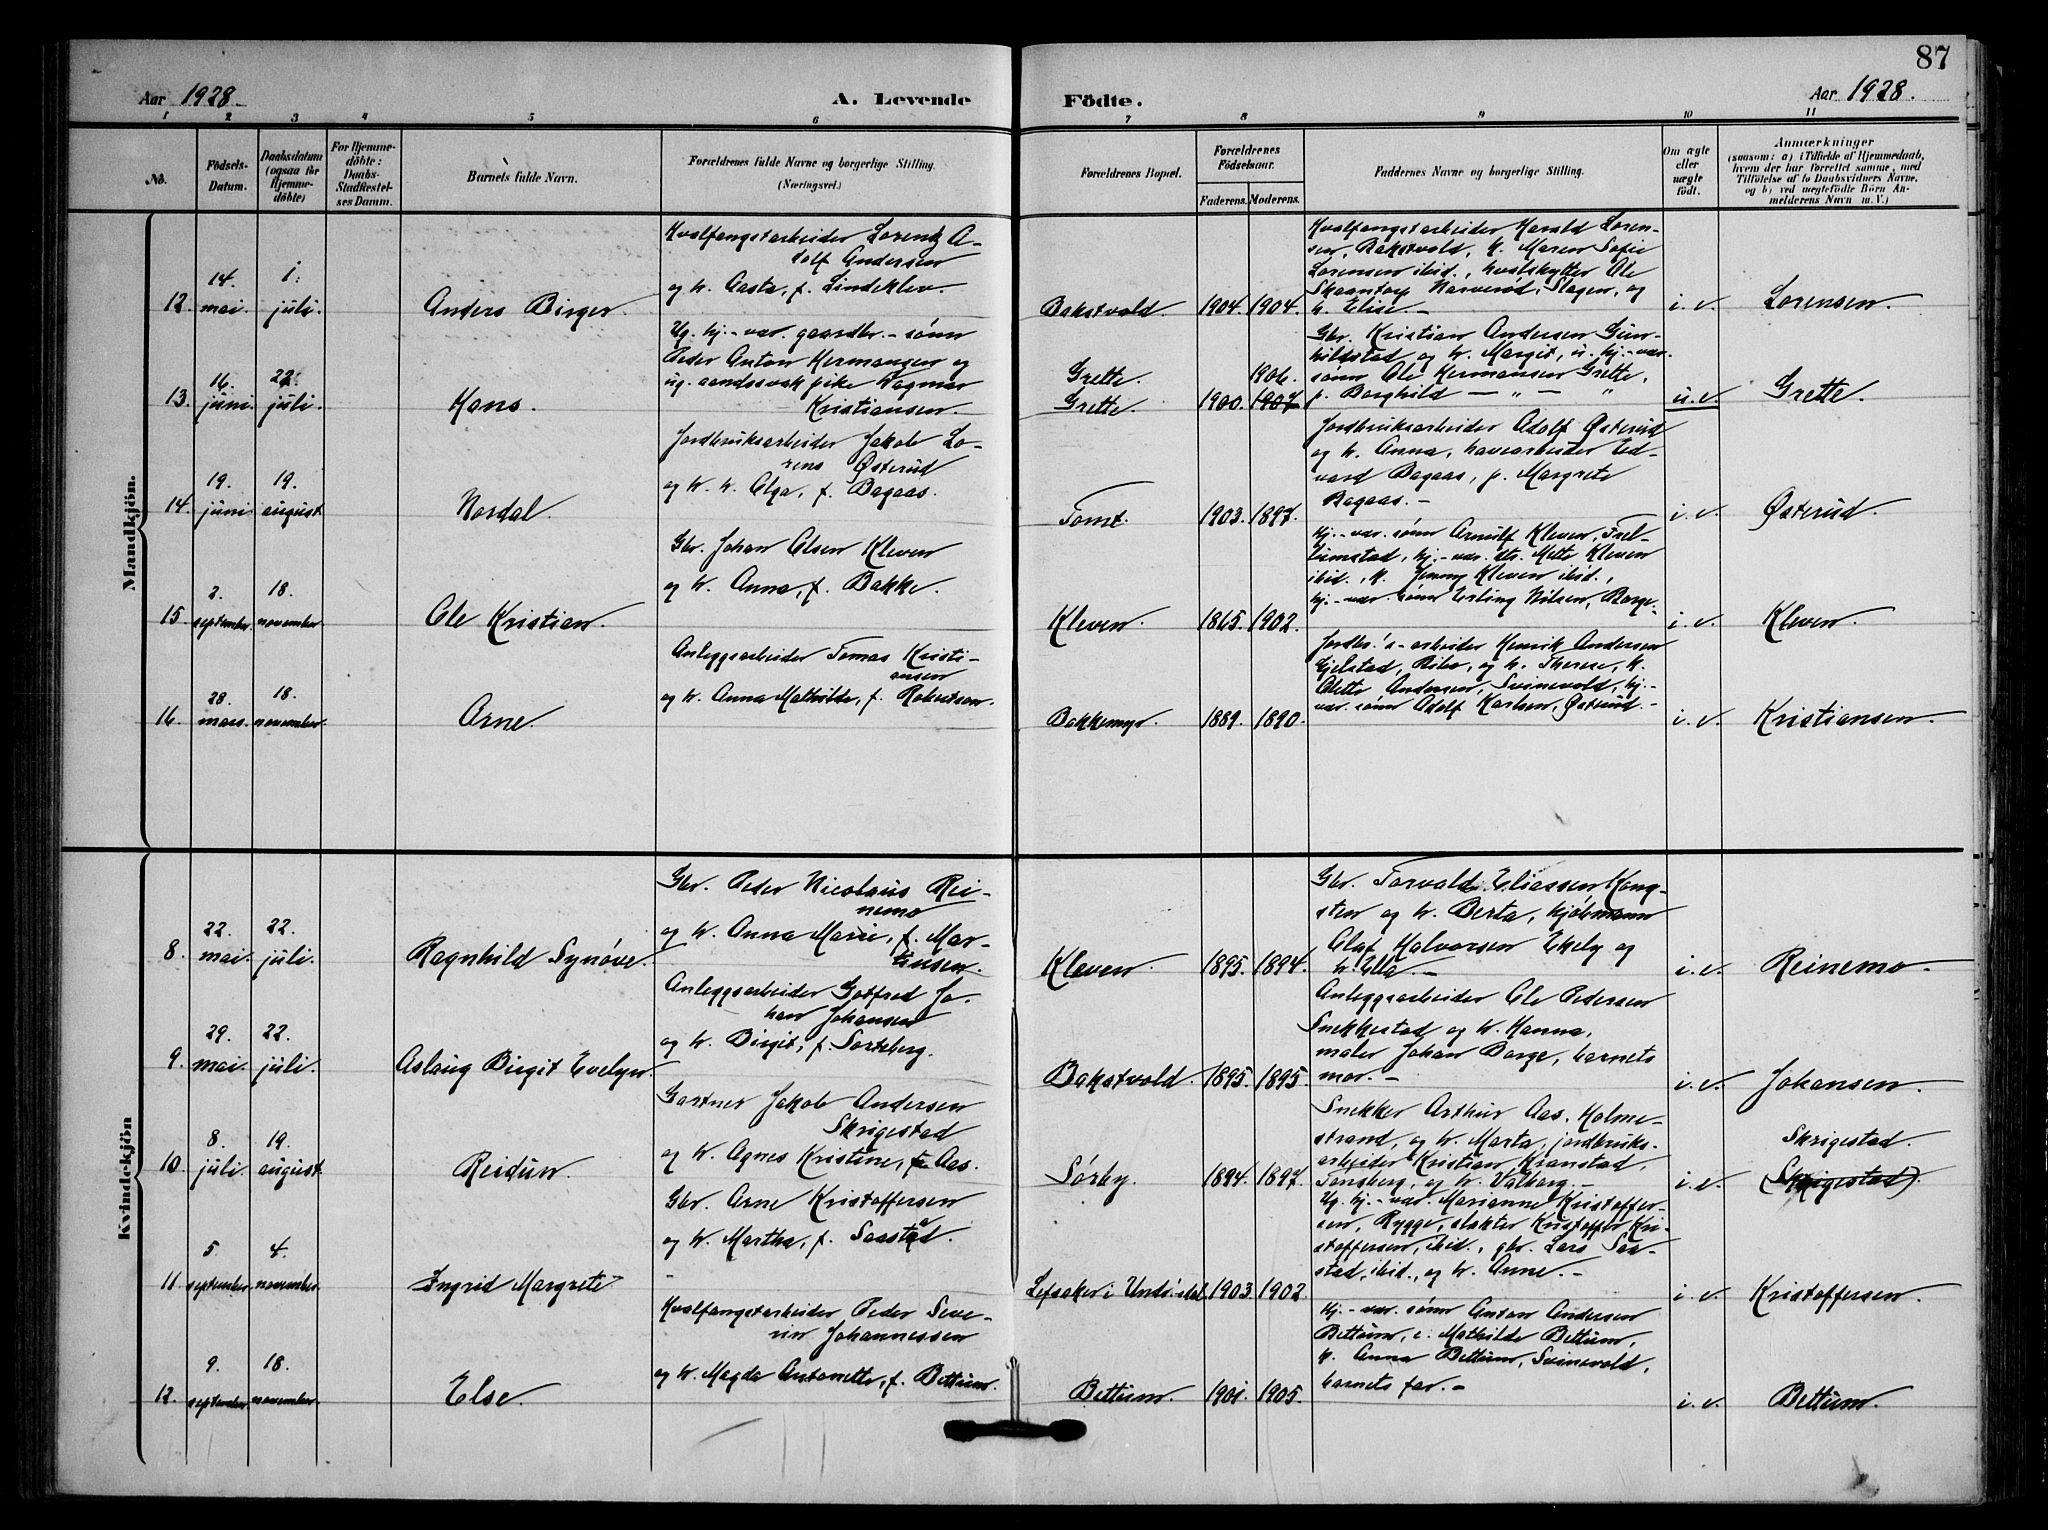 87
Aar 1928.
A. Levende
Födte.
Aar 1928.
1 2 3 4 5 6 7 8 9 10 11
No.
Födsels-
Datum.
Daabsdatum
(ogsaa for
Hjemme-
döbte)
For Hjemme-
döbte:
Daabs-
Stadfæstel-
ses Datum.
Barnets fulde Navn.
Forældrenes fulde Navne og borgerlige Stilling.
(Næringsvei.)
Forældrenes Bopæl.
Forældrenes
Fødselsaar.
Faderens. Moderens.
Faddernes Navne og borgerlige Stilling.
Om ægte
eller
uægte
födt.
Anmærkninger
(saasom: a) i Tilfælde af Hjemmedaab,
hvem der har forrettet samme, med
Tilföielse af to Daabsvidners Navne,
og b) ved uægtefödte Börn An-
melderens Navn m.V.)
Mandkjön.
12.
14
mai.
1.
juli.
Anders Birger.
Hvalfangstarbeider Lorentz A-
dolf Andersen
og h. Aasta, f. Lindeklev.
Bakstvold
1904. 1904.
Hvalfangstarbeider Harald Loren-
sen, Bakstvold, k. Maren Sofie
Lorensen ibid., hvalskytter Ole
Skaantorp Narverød, Slagen, og
h. Elise.
i. e.
Lorensen
13.
16.
juni
22.
juli.
Hans.
Ug. hj.-var. gaardbr.-sönn
Peder Anton Hermansen og
ug. aandssvak pike Dagmar
Kristiansen.
Grette.
Grette.
1900. 1906.
1907
Gbr. Kristian Andersen Gun-
hildstad og h. Margit, u. hj.-var.
sönn Ole Hermansen Grette,
p. Borghild — „ — „
u. e.
Grette.
14.
19.
juni.
19.
august.
Nordal.
Jordbruksarbeider Jakob Lo-
rens Østerud
og h. h. Olga, f. Bagaas.
Tomt.
1903. 1897.
Jordbruksarbeider Adolf Østerud
og h. Anna, havearbeider Ed-
vard Bagaas, p. Margrete
Bagaas.
i. e.
Østerud.
15.
2.
september.
18.
november.
Ole Kristian.
Gbr. Johan Olsen Kleven
og h. Anna, f. Bakke.
Kleven
1865. 1902.
hj.-var. sönn Arnulf Kleven,
hj.-var. dtr. Mette Kleven
ibid., k. Jenny Kleven ibid.,
hj.-var. sönn Erling Nilsen, Borge.
i. e.
Kleven.
16.
28.
mars.
18.
november.
Arne
Anleggsarbeider Tomas Kristi-
ansen
og h. Anna Mathilde, f. Robertsen.
Bakkemyr.
1889. 1890.
Jordbr.'s-arbeider Henrik Andersen
Gjelstad, og h. Therese, k.
Olette Andersen, Svinevold, hj.-
var. sönn Adolf Karlsen, Østerud.
i. e.
Kristiansen.
Kvindekjön
8.
22.
mai.
22.
juli.
Ragnhild Synøve.
Gbr. Peder Nicolaus Rei-
nemo
og h. Anna Marie, f. Mar-
tinsen.
Kleven
1895. 1894.
Gbr. Torvald Eliassen Kong-
sten og h. Berta, kjøbmann
Olaf Halvorsen Ekely og
h. Ella
i. e.
Reinemo.
9.
29.
mai.
22.
juli.
Aslaug Birgit Evelyn.
Anleggsarbeider Gotfred Jo-
han Johansen
og h. Birgit, f. Sorteberg.
Bakstvold.
1895. 1895.
Anleggsarbeider Ole Pedersen
Snekkestad og h. Hanna,
maler Johan Borge, barnets
mor.
i. e.
Johansen.
10.
8.
juli.
19.
august.
Reidun.
Gartner Jakob Andersen
Skrigestad
og h. Agnes Kristine, f. Aas.
Sørby
1894. 1897.
Snekker Arthur Aas. Holme-
strand, og h. Marta, jordbruks-
arbeider Kristian Kranstad,
Tønsberg, og h. Valborg.
i. e.
Skrigestad.
(Skrigestad)
11.
5.
september.
4.
november.
Ingrid Margrete
Gbr. Arne Kristoffersen
og h. Martha, f. Saastad.
Lefsaker i
1903. 1902
Ug. hj.-var. Marianne Kristoffer-
sen, Rygge, slakter Kristoffer Kri-
stoffersen, ibid., gbr. Lars Saa-
stad, ibid., og h. Anne.
i. e.
Kristoffersen.
12.
9.
september.
18.
november.
Else.
Hvalfangstarbeider Peder Seve-
rin Johannessen
og h. Magda Antonette, f. Bettum.
Bettum.
1901. 1905.
hj.-var. sönn Anton Andersen
Bettum, e. Mathilde Bettum,
k. Anna Bettum, Svinevold,
barnets far.
i. e.
Bettum.